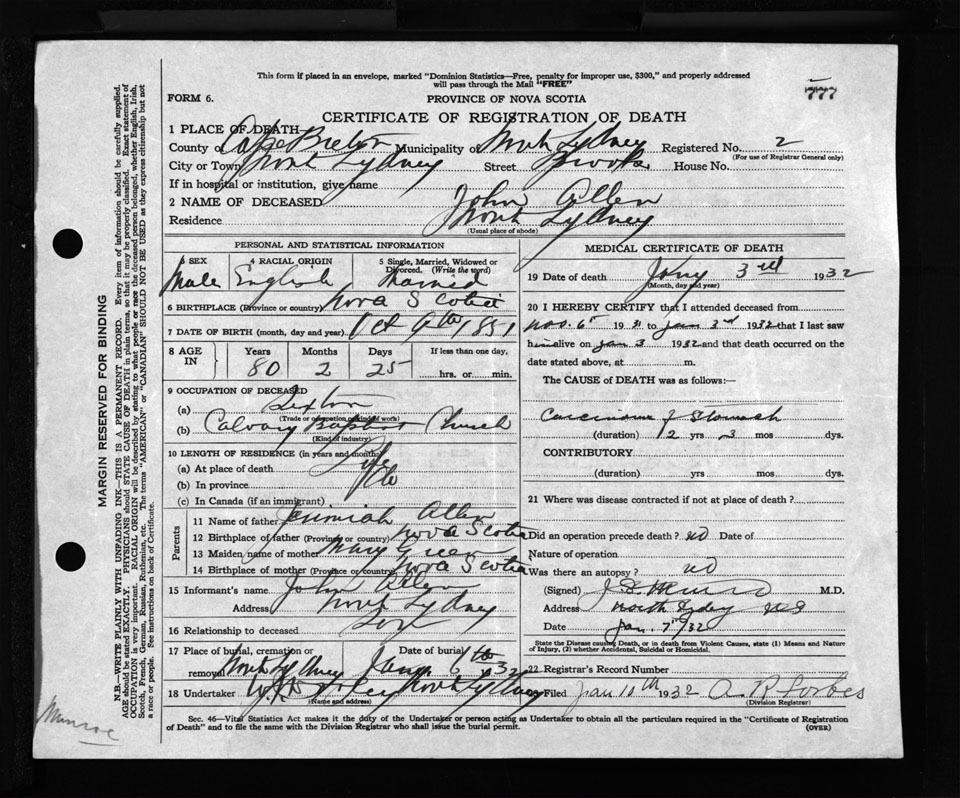 This form if placed in an envelope, marked "Dominion Statistics—Free, penalty for improper use, $300," and properly addressed
will pass through the Mail "FREE"
777
FORM 6.
PROVINCE OF NOVA SCOTIA
CERTIFICATE OF REGISTRATION OF DEATH
1 PLACE OF DEATH
County of Cape Breton Municipality of North Sydney Registered No. 2
(For use of Registrar General only)
City or Town North Sydney Street Brook House No.
If in hospital or institution, give name
2 NAME OF DECEASED John Allen
Residence North Sydney
(Usual place of abode)
PERSONAL AND STATISTICAL INFORMATION
3 SEX
Male
4 RACIAL ORIGIN
English
5 Single, Married, Widowed or
Divorced. (Write the word)
Married
6 BIRTHPLACE (Province or country) Nova Scotia
7 DATE OF BIRTH (month, day and year) Oct 9th, 1851
8 AGE IN
Years 80
Months 2
Days 25
If less than one day,
hrs. or min.
9 OCCUPATION OF DECEASED
(a) Sexton
(Trade or occupation, kind of work)
(b) Calvary Baptist Church
(Kind of industry)
10 LENGTH OF RESIDENCE (in years and months)
(a) At place of death Life
(b) In province do
(c) In Canada (if an immigrant)
Parents
11 Name of father Jerimiah Allen
12 Birthplace of father (Province or country) Nova Scotia
13 Maiden name of mother Mary Green
14 Birthplace of mother (Province or country) Nova Scotia
15 Informant's name John Allen
Address North Sydney
16 Relationship to deceased Son
17 Place of burial, cremation or
removal North Sydney
Date of burial
Jany 6th 1932
18 Undertaker North Sydney
(Name and address)
MEDICAL CERTIFICATE OF DEATH
19 Date of death Jany 3rd 1932
(Month, day and year)
20 I HEREBY CERTIFY that I attended deceased from
Nov. 6th 1931 to Jan 3rd 1932 that I last saw
him alive on Jan 3 1932 and that death occurred on the
date stated above, at m.
The CAUSE of DEATH was as follows:—
Carcinoma of Stomach
(duration) 2 yrs 3 mos dys.
CONTRIBUTORY
(duration) yrs. mos. dys.
21 Where was disease contracted if not at place of death?
Did an operation precede death? no Date of
Nature of operation
Was there an autopsy? no
(Signed) Munro M.D.
Address North Sydney N.S
Date Jan. 7th/32
State the Disease causing Death, or in death from Violent Causes, state (1) Means and Nature
of Injury, (2) whether Accidental, Suicidal or Homicidal.
22 Registrar's Record Number
23 Filed Jan 10th 1932 A R Forbes
(Division Registrar)
Sec. 46—Vital Statistics Act makes it the duty of the Undertaker or person acting as Undertaker to obtain all the particulars required in the "Certificate of Registration
of Death" and to file the same with the Division Registrar who shall issue the burial permit. (OVER)
MARGIN RESERVED FOR BINDING
N.B.—WRITE PLAINLY WITH UNFADING INK—THIS IS A PERMANENT RECORD. Every item of information should be carefully supplied.
AGE should be stated EXACTLY. PHYSICIANS should STATE CAUSE OF DEATH in plain terms, so that it may be properly classified. Exact statement of
OCCUPATION is very important. RACIAL ORIGIN will be described by stating to what people or race the deceased person belonged, whether English, Irish,
Scotch, French, German, Russian, Ruthenian, etc. The terms "AMERICAN" or "CANADIAN" SHOULD NOT BE USED as they express citizenship but not
a race or people. See instructions on back of Certificate.